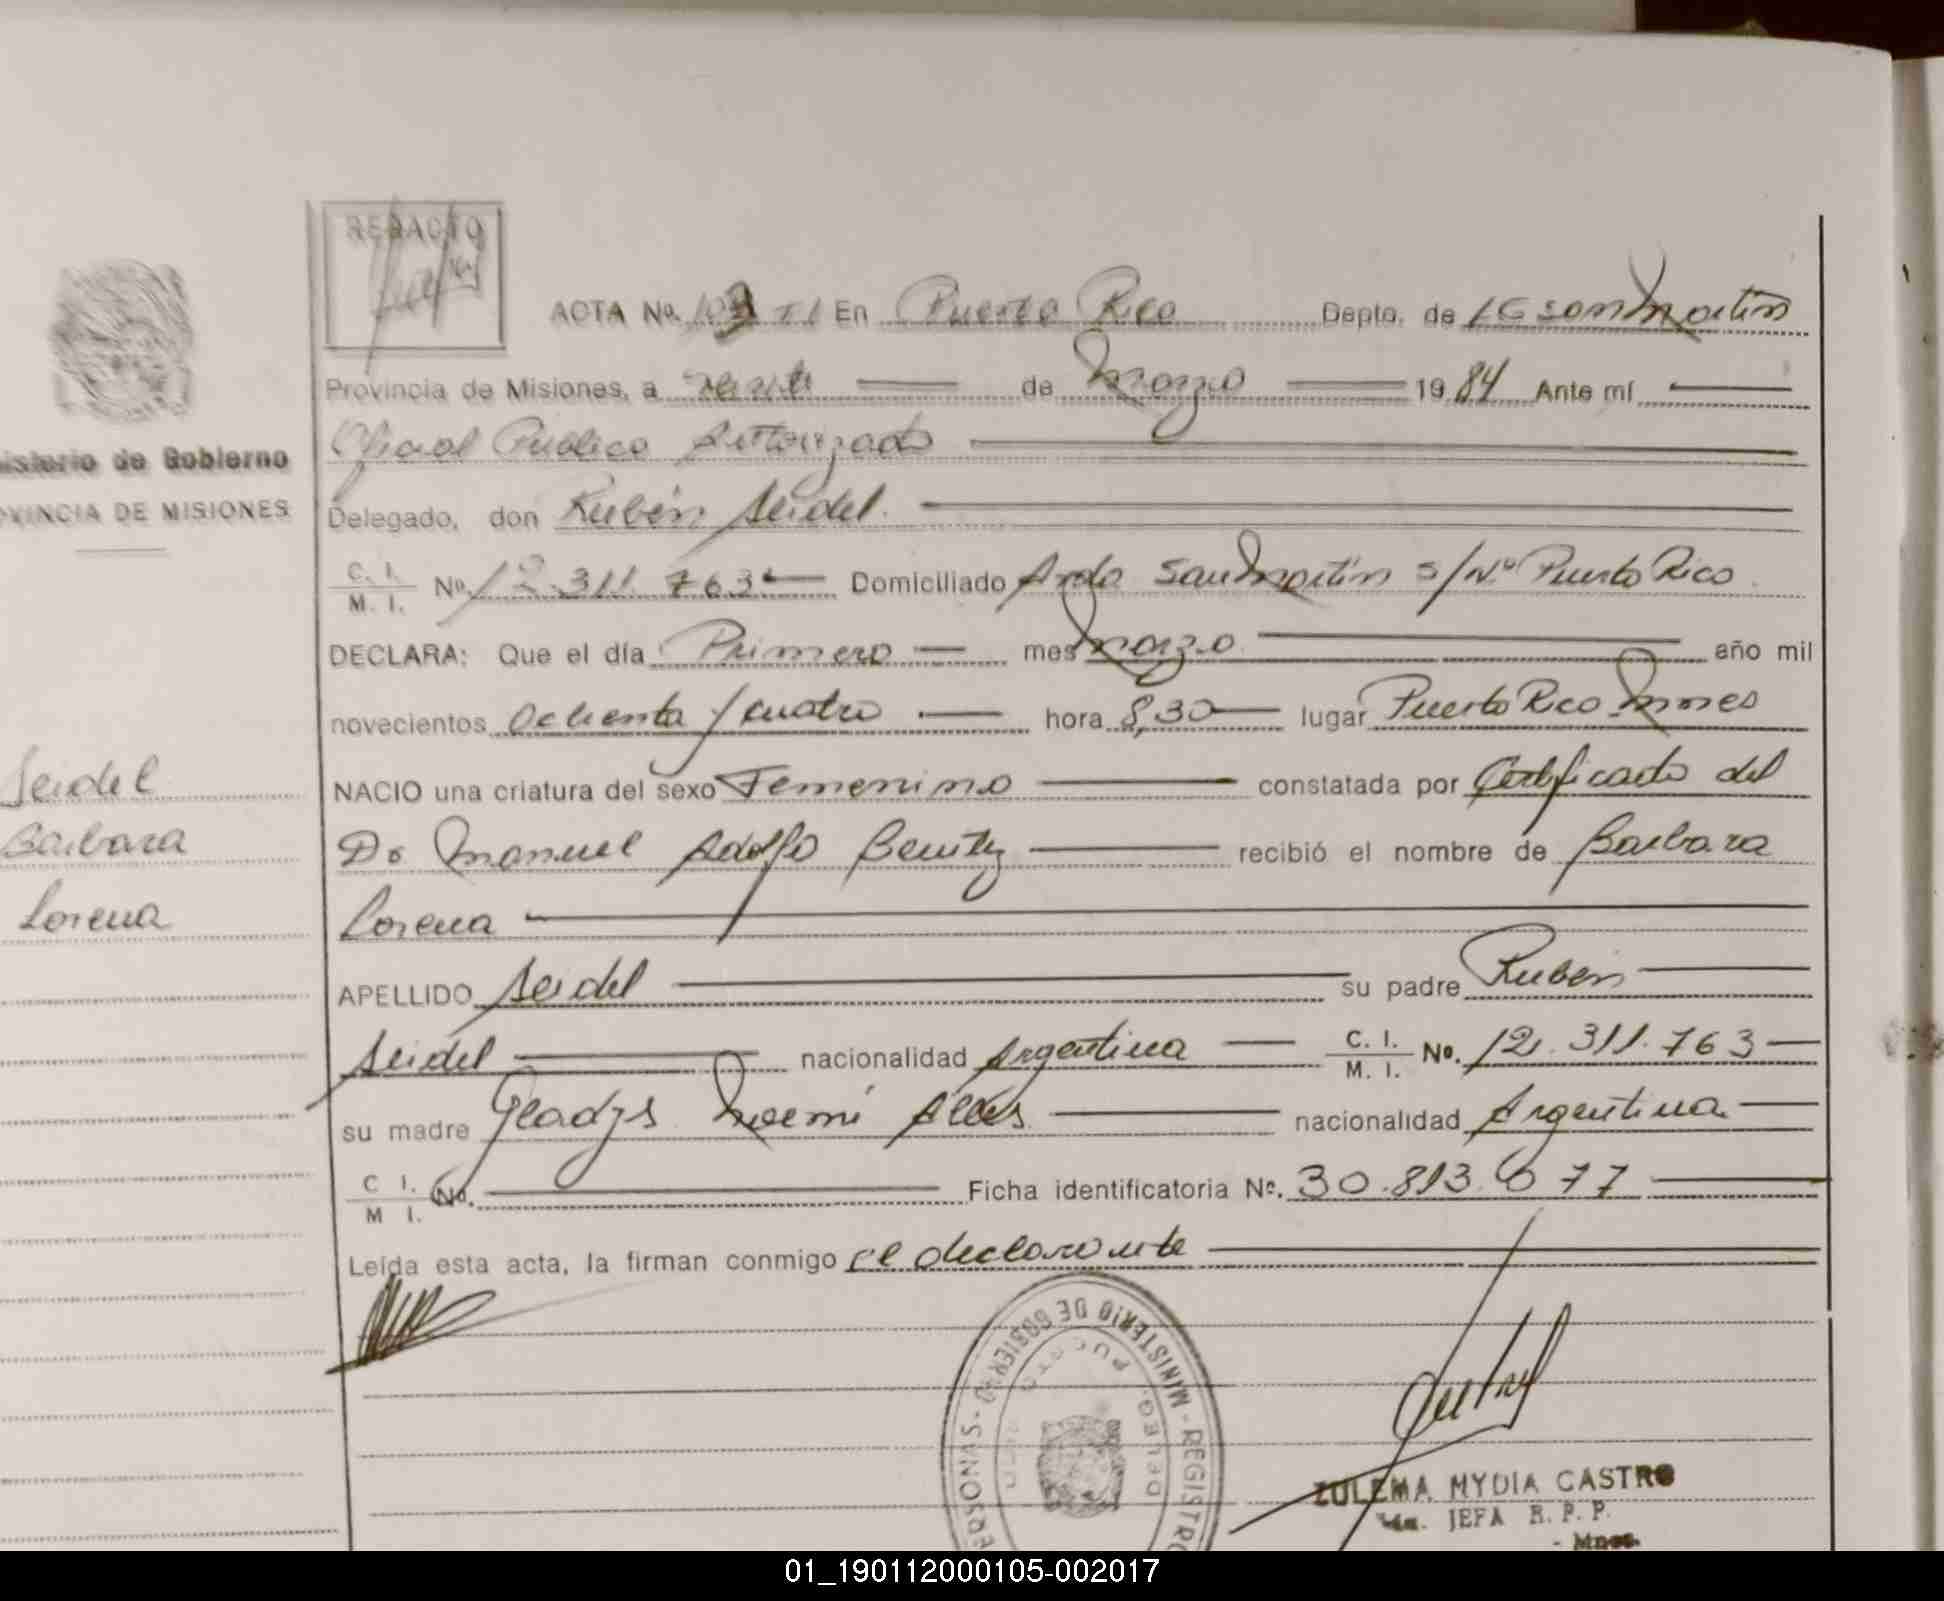 REDACTO
ACTA No. 103 T I En Puerto Rico Depto. de LG San Martin
Provincia de Misiones, a veinte de Marzo 1984 Ante mí
Oficial Publico Autorizado
isterio de Gobierno
OVINCIA DE MISIONES
Delegado, don Rubén Seidel.
C. I. M. I. No. 12.311.763 Domiciliado Avda San Martin s/Nº Puerto Rico
DECLARA: Que el día Primero mes Marzo año mil
novecientos Ochenta y cuatro hora 8,30 lugar Puerto Rico Mnes
Seidel
NACIO una criatura del sexo Femenino constatada por Certificado del
Barbara
Dr Manuel Adolfo Benitez recibió el nombre de Barbara
Lorena
Lorena
APELLIDO Seidel su padre Ruben
Seidel nacionalidad Argentina C. I. M. I. No. 12.311.763
su madre Gladys Noemi nacionalidad Argentina
C I. M I. No. Ficha identificatoria Nº. 30.813.677
Leída esta acta, la firman conmigo el declarante
ERSONAS - MINISTERIO DE GOBIERNO - REGISTRO
DELEG. PUERTO RICO
ZULEMA MYDIA CASTRO
JEFA R. P. P.
- Mnes.
01_190112000105-002017